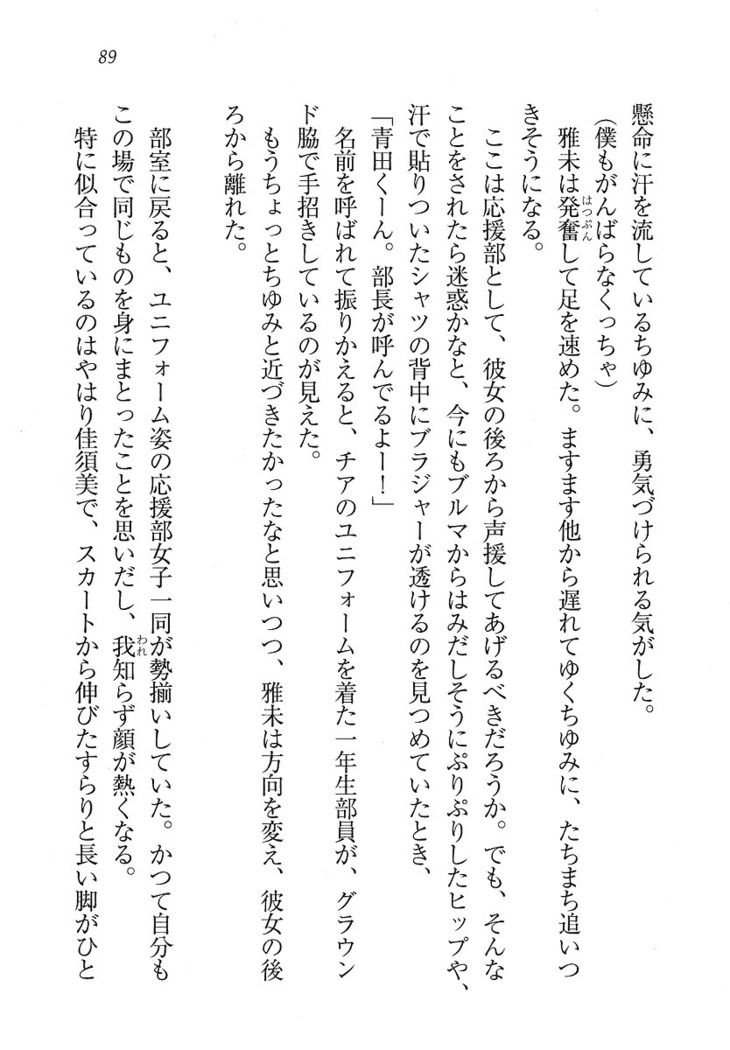 89
懸命に汗を流しているちゆみに、勇気づけられる気がした。
(僕もがんばらなくっちゃ)
雅未は発奮して足を速めた。ますます他から遅れてゆくちゆみに、たちまち追いつ
きそうになる。
ここは応援部として、彼女の後ろから声援してあげるべきだろうか。でも、そんな
ことをされたら迷惑かなと、今にもブルマからはみだしそうにぷりぷりしたヒップや、
汗で貼りついたシャツの背中にブラジャーが透けるのを見つめていたとき、
「青田くーん。部長が呼んでるよー！」
名前を呼ばれて振りかえると、チアのユニフォームを着た一年生部員が、グラウン
ド脇で手招きしているのが見えた。
もうちょっとちゆみと近づきたかったなと思いつつ、雅未は方向を変え、彼女の後
ろから離れた。
部室に戻ると、ユニフォーム姿の応援部女子一同が勢揃いしていた。かつて自分も
この場で同じものを身にまとったことを思いだし、我知らず顔が熱くなる。
特に似合っているのはやはり佳須美で、スカートから伸びたすらりと長い脚がひと